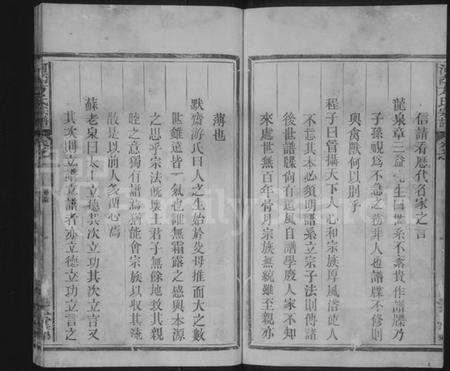 信請看歷代名家之言
龍泉章三益先生曰世系不蕃貴作譜牒乃
子孫視為不急之
與禽獸何以別乎
程子曰管攝天下人心和宗族厚風俗使人
不忘其本必須明譜系立宗子法則傳諸
後世譜牒尚有遺風自譜學廢人家不知
來處世無百年骨肉宗族無統雖至親亦
薄也
默齋游氏曰人之生始於父母推而大之數
世雖遠皆一氣也誰無霜露之感與本源
之思乎宗法既壞士君子無餘地致其親
睦之意獨有譜尚能會宗族以收其渙
散是以前人多留心焉
蘇老泉曰太上立德其次立功其次立言又
其次則立譜立譜者亦立德立功立言之